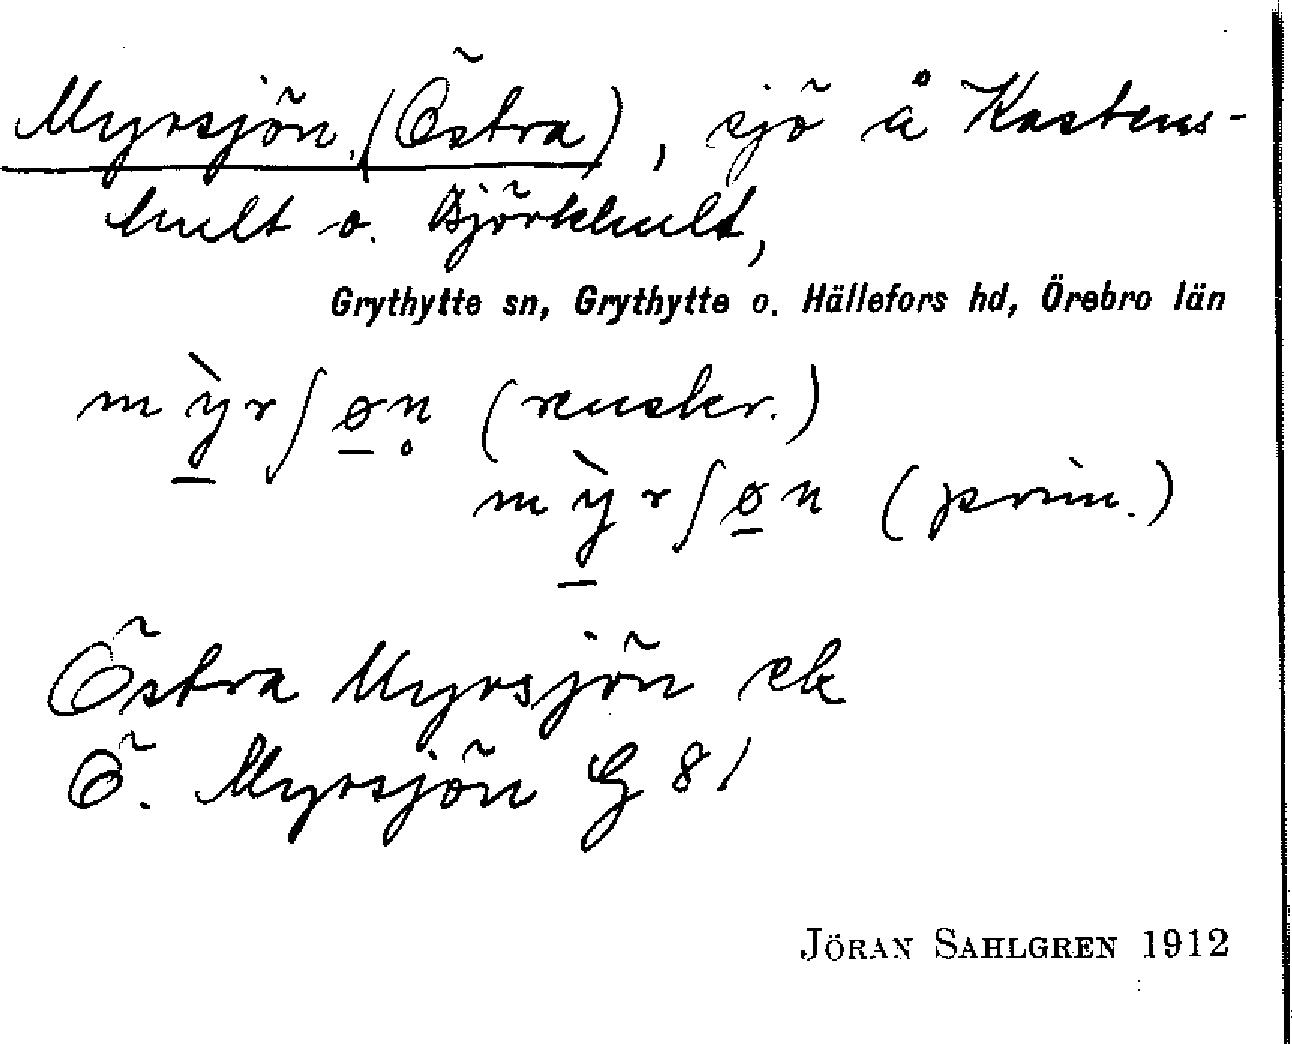 Myrsjön (Östra), sjö å Kastens-
hult o. Björkhult,
Grythytte sn, Grythytte o. Hällefors hd, Örebro län
mỳrʃøn̥ (renskr.)
mỳrʃøn (prim.)
Östra Myrsjön ek
Ö. Myrsjön G 81
JÖRAN SAHLGREN 1912